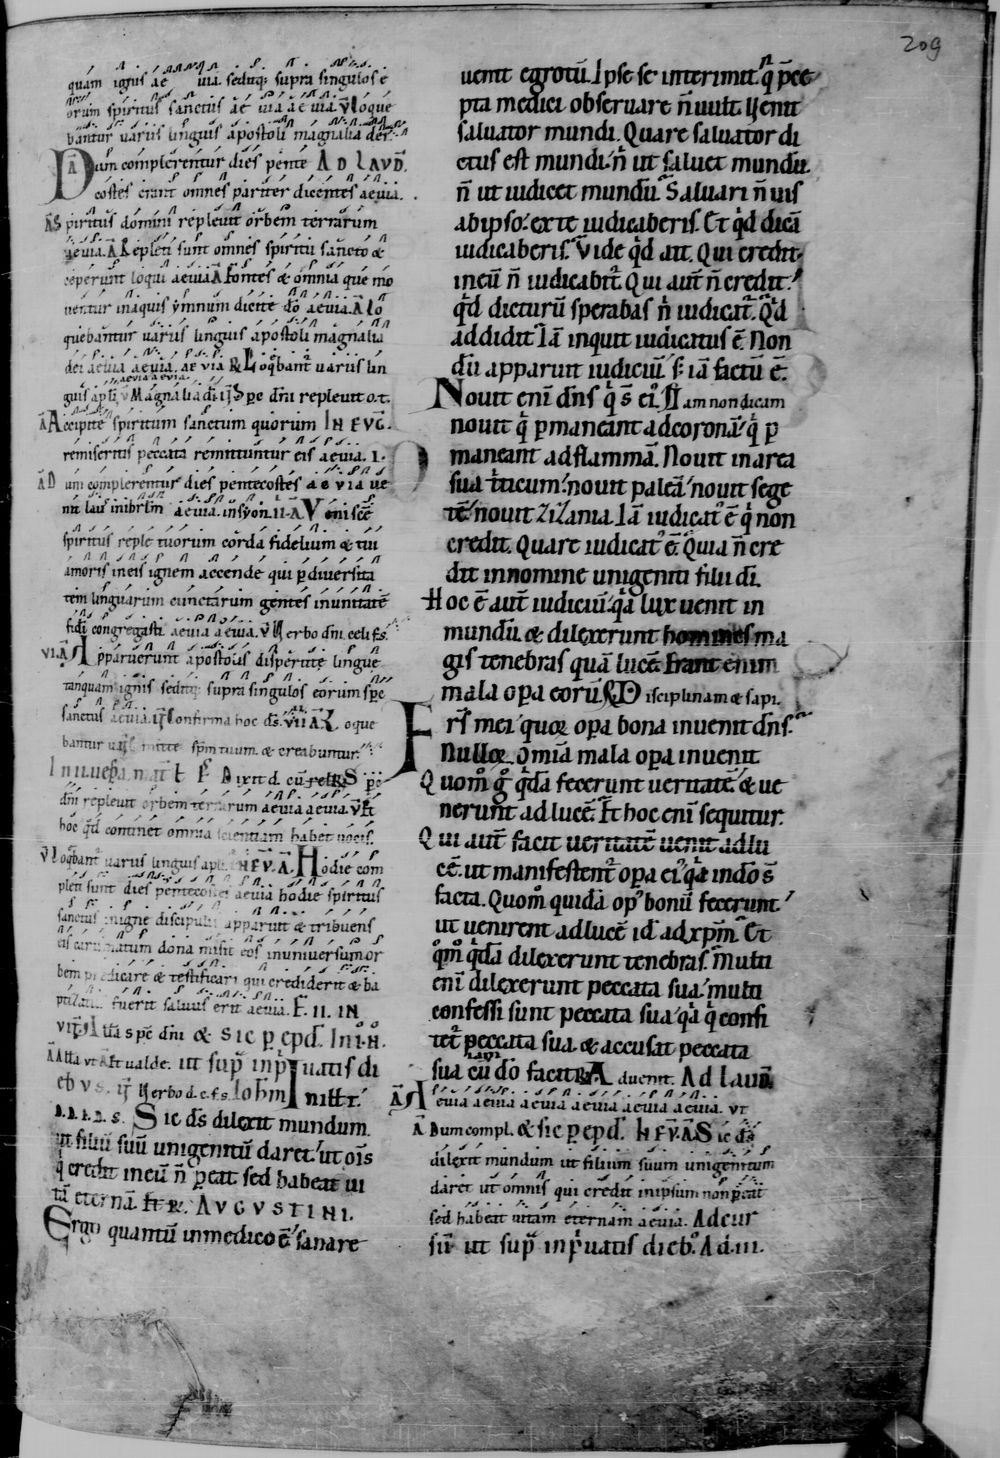 209
quám ignis ae uia. seditq; supra singulos e
orum spiritus sanctus ae uia ae uia. V̄ loque
bantur uariis linguis apostoli magnalia dei.
Ā Dum complerentur dies pente AD LAVD̄.
costes erant omnes pariter dicentes aeuia.
Ā Spiritus domini repleuit orbem terrarum
aeuia. Ā Repleti sunt omnes spiritu sancto &
ceperunt loqui aeuia Ā Fontes & omnia que mo
uentur in aquis ymnum dicite dō aeuia. Ā Lo
quebantur uariis linguis apostoli magnalia
dei aeuia aeuia. ae uia R̄ Loq̄bant̄ uariis lin
aeuia aeuia.
guis apłi V̄ Magnalia di ij Spc dnī repleuit o.t.
Ā Accipite spiritum sanctum quorum IN EVG̅.
remiseritis peccata remittuntur eis aeuia. I.
Ā Dum complerentur dies pentecostes ae uia ue
nit lau inibrlm aeuia. in syon. II. Ā Veni scē
spiritus reple tuorum corda fidelium & tui
amoris in eis ignem accende qui p diuersita
tem linguarum cunctarum gentes in unitatē
fidi congregasti aeuia aeuia. V̄ Uerbo dnī celi f.s.
VI. Ā Apparuerunt apostolis dispertite lingue
tanquam ignis seditq; supra singulos eorum spc
sanctus aeuia. ij Confirma hoc ds̄. VII Ā Loque
bantur mitte spm tuum. & creabuntur.
Dixit d. cū relR̄ Spc
dnī repleuit orbem terrarum aeuia aeuia. V̄ Et
hoc qd continet omnia scientiam habet uocis.
V̄ Loqbant̄ uariis linguis apłi IN EV. Ā. Hodie com
pleti sunt dies pentecostes aeuia hodie spiritus
sanctus in igne discipulis apparuit & tribuens
eis carismatum dona misit eos in uniuersum or
bem predicare & testificari qui crediderit & ba
ptizatus fuerit saluus erit aeuia. F. II. IN
VIT̄. Atta spc dnī & sic p epd. IN I. H̊.
Ā Atta VT Ā Et ualde. ut sup̄ in pͥuatis di
ebus. ij Uerbo d. c. f. s. Iohm
IN ILL̄ T̄.
D. D. I. D. S. Sic ds̄ dilexit mundum.
ut filiū suū unigenitū daret. ut oīs
q̇ credit in eū n̄ peat sed habeat ui
tā eternā. Et R̄. AVGVSTINI.
Ergo quantū in medico ē sanare
uenit egrotū. Ipse se interimit q̇ p̄ce
pta medici obseruare n̄ uult. Uenit
saluator mundi. Quare saluator di
ctus est mundi. n̄ ut saluet mundū.
n̄ ut iudicet mundū. Saluari n̄ uis
ab ipso. ex te iudicaberis. Et qd dicā
iudicaberis. Vide qd ait. Qui credit
in eū n̄ iudicabit̄. Qui aut̄ n̄ credit.
qd dicturū sperabas n̄ iudicat̄. Qd
addidit Iā inquit iudicatus ē. Non
dū apparuit iudiciū. s; iā factū ē.
Nouit enī dns̄ q̇ s̄ ei'. Nam non dicam
nouit q̇ p maneant ad coronā. q̇ p
maneant ad flammā. Nouit in area
sua triticum. nouit paleā. nouit sege
tē. nouit zizania. Iā iudicat' ē q̇ non
credit. Quare iudicat' ē. Quia n̄ cre
dit in nomine unigeniti filii di.
Hoc ē aut̄ iudiciū. qa lux uenit in
mundū & dilexerunt homines ma
gis tenebras quā lucē. Erant enim
mala opa eorū R̄ Disciplinam & sapi.
Frs̄ mei. quor opa bona inuenit dns̄.
Nullor. omīa mala opa inuenit
Quom̊ g̊ qdā fecerunt ueritatē. & ue
nerunt ad lucē. Et hoc enī sequitur.
Qui aut̄ facit ueritatē uenit ad lu
cē. ut manifestent̄ opa ei'. qa in dō s̄
facta. Quom̊ quidā op' bonū fecerunt.
ut uenirent ad lucē id ad xpm̄. Et
qm̊ qdā dilexerunt tenebras. Multi
enī dilexerunt peccata sua. multi
confessi sunt peccata sua. qa q̇ confi
tet̄ peccata sua. & accusat peccata
sua iam cū dō facit R̄ Aduenit. AD LAUD̄.
Ā Aeuia aeuia aeuia aeuia aeuia aeuia. VT
Ā Dum compl. & sic p epd. IN EV. Ā Sic ds̄
dilexit mundum ut filium suum unigenitum
daret ut omnis qui credit in ipsum non peat
sed habeat uitam eternam aeuia. Ad cur
sū ut sup̄ in pͥuatis dieb'. Ad. III.